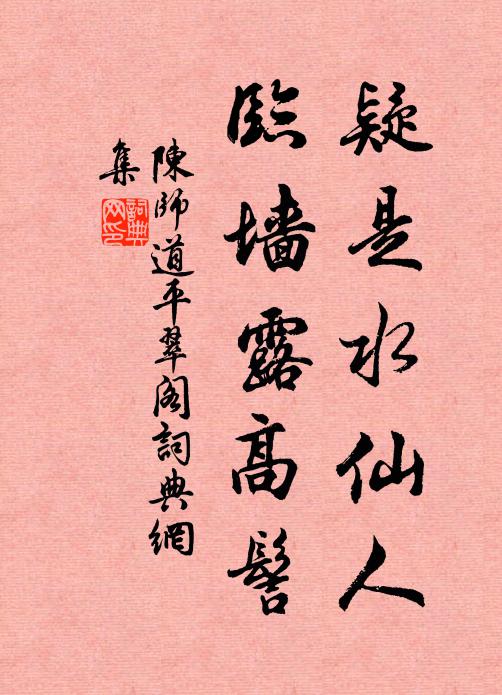 疑是水仙人
臨墻露高髻
陳師道平翠阁詞典網
集
詞典
网印